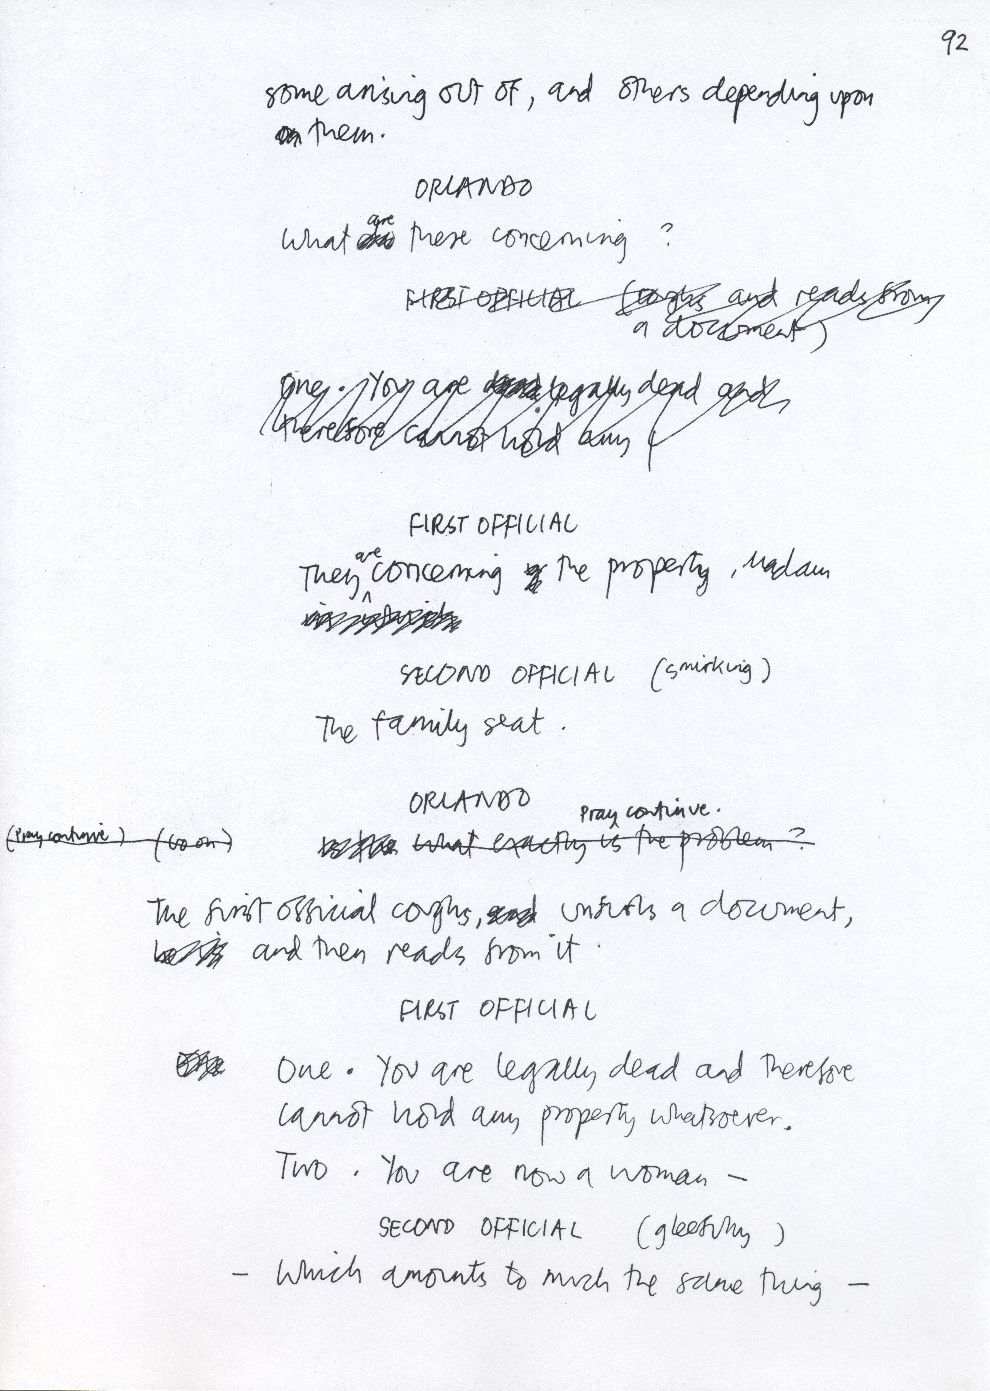 92
some arising out of, and others depending upon
on them.
ORLANDO
are
What these concerning ?
FIRST OFFICIAL (coughs and reads from
a document)
One. You are legally dead and
therefore cannot hold any
FIRST OFFICIAL
are
They concerning the property, Madam
SECOND OFFICIAL (smirking)
The family seat.
ORLANDO
Pray continue.
(Pray continue) (Go on) What exactly is the problem?
The first official coughs, and unfurls a document,
and then reads from it.
FIRST OFFICIAL
One. You are legally dead and therefore
cannot hold any property whatsoever.
Two. You are now a woman –
SECOND OFFICIAL (gleefully)
– Which amounts to much the same thing –